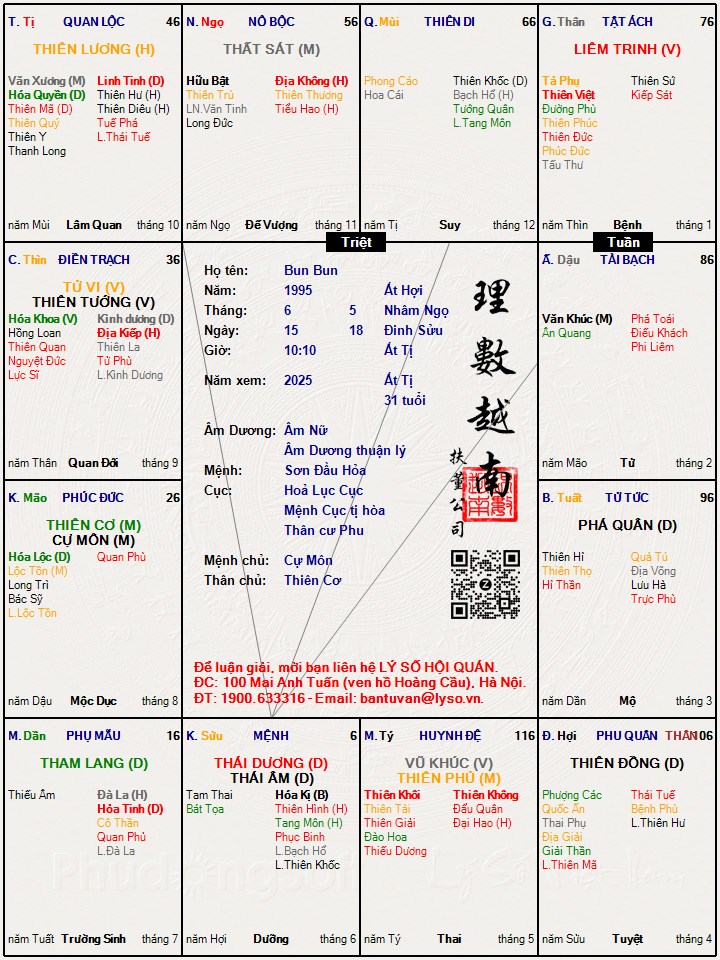 T. Tị QUAN LỘC 46
THIÊN LƯƠNG (H)
Văn Xương (M) Linh Tinh (D)
Hóa Quyền (D) Thiên Hư (H)
Thiên Mã (D) Thiên Diêu (H)
Thiên Quý Tuế Phá
Thiên Y L.Thái Tuế
Thanh Long
năm Mùi Lâm Quan tháng 10
N. Ngọ NÔ BỘC 56
THẤT SÁT (M)
Hữu Bật Địa Không (H)
Thiên Trù Thiên Thương
LN.Văn Tinh Tiểu Hao (H)
Long Đức
năm Ngọ Đế Vượng tháng 11
Q. Mùi THIÊN DI 66
Phong Cáo Thiên Khốc (D)
Hoa Cái Bạch Hổ (H)
Tướng Quân
L.Tang Môn
năm Tị Suy tháng 12
G. Thân TẬT ÁCH 76
LIÊM TRINH (V)
Tả Phụ Thiên Sứ
Thiên Việt Kiếp Sát
Đường Phù
Thiên Phúc
Thiên Đức
Phúc Đức
Tấu Thư
năm Thìn Bệnh tháng 1
Triệt
Tuần
C. Thìn ĐIỀN TRẠCH 36
TỬ VI (V)
THIÊN TƯỚNG (V)
Hóa Khoa (V) Kình dương (D)
Hồng Loan Địa Kiếp (H)
Thiên Quan Thiên La
Nguyệt Đức Tử Phù
Lực Sĩ L.Kình Dương
năm Thân Quan Đới tháng 9
Họ tên: Bun Bun
Năm: 1995 Ất Hợi
Tháng: 6 5 Nhâm Ngọ
Ngày: 15 18 Đinh Sửu
Giờ: 10:10 Ất Tị
Năm xem: 2025 Ất Tị
31 tuổi
Âm Dương: Âm Nữ
Âm Dương thuận lý
Mệnh: Sơn Đầu Hỏa
Cục: Hoả Lục Cục
Mệnh Cục tị hòa
Thân cư Phu
Mệnh chủ: Cự Môn
Thân chủ: Thiên Cơ
理數越南
扶董公司
Để luận giải, mời bạn liên hệ LÝ SỐ HỘI QUÁN.
ĐC: 100 Mai Anh Tuấn (ven hồ Hoàng Cầu), Hà Nội.
ĐT: 1900.633316 - Email: bantuvan@lyso.vn.
Ấ. Dậu TÀI BẠCH 86
Văn Khúc (M) Phá Toái
Ân Quang Điếu Khách
Phi Liêm
năm Mão Tử tháng 2
K. Mão PHÚC ĐỨC 26
THIÊN CƠ (M)
CỰ MÔN (M)
Hóa Lộc (D) Quan Phù
Lộc Tồn (M)
Long Trì
Bác Sỹ
L.Lộc Tồn
năm Dậu Mộc Dục tháng 8
B. Tuất TỬ TỨC 96
PHÁ QUÂN (D)
Thiên Hỉ Quả Tú
Thiên Thọ Địa Võng
Hỉ Thần Lưu Hà
Trực Phù
năm Dần Mộ tháng 3
M. Dần PHỤ MẪU 16
THAM LANG (D)
Thiếu Âm Đà La (H)
Hỏa Tinh (D)
Cô Thần
Quan Phủ
L.Đà La
năm Tuất Trường Sinh tháng 7
K. Sửu MỆNH 6
THÁI DƯƠNG (D)
THÁI ÂM (D)
Tam Thai Hóa Kị (B)
Bát Tọa Thiên Hình (H)
Tang Môn (H)
Phục Binh
L.Bạch Hổ
L.Thiên Khốc
năm Hợi Dưỡng tháng 6
M. Tý HUYNH ĐỆ 116
VŨ KHÚC (V)
THIÊN PHỦ (M)
Thiên Khôi Thiên Không
Thiên Tài Đẩu Quân
Thiên Giải Đại Hao (H)
Đào Hoa
Thiếu Dương
năm Tý Thai tháng 5
Đ. Hợi PHU QUÂN THÂN 106
THIÊN ĐỒNG (D)
Phượng Các Thái Tuế
Quốc Ấn Bệnh Phù
Thai Phụ L.Thiên Hư
Địa Giải
Giải Thần
L.Thiên Mã
năm Sửu Tuyệt tháng 4